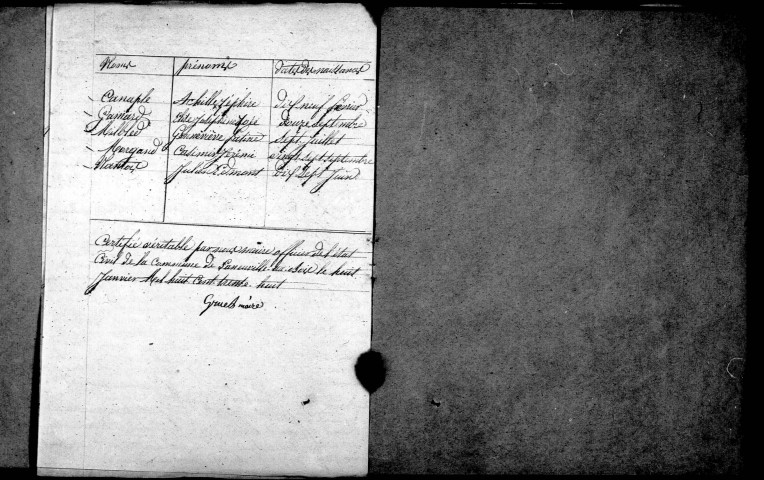 Noms prénoms dates des naissances
Canaple Achille Zéphire dix neuf février
Gamard douze septembre
Geneviève sept juillet
Morgand Casimir Jérémi vingt sept septembre
Jules Edmont dix sept juin
Certifié véritable par nous maire officier de l'état
Civil de la Commune de Laneuville le huit
Janvier Mil huit Cent trente huit
maire